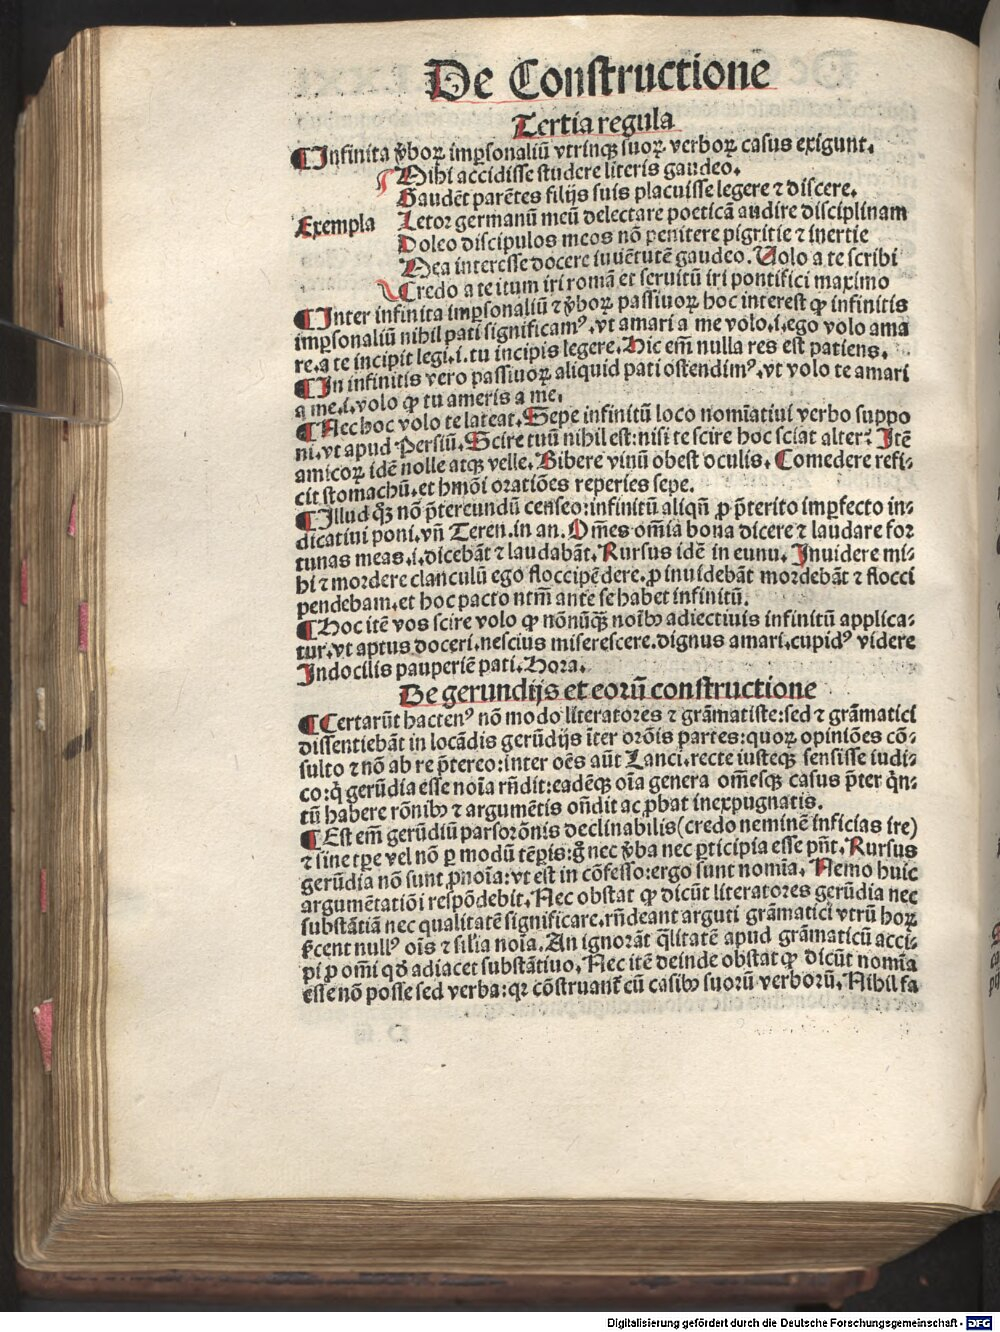 De Constructione
Tertia regula
¶Infinita v̄boꝝ imp̲sonaliū vtrinqꝫ suoꝝ verboꝝ casus exigunt.
Mihi accidisse studere literis gaudeo.
Gaudēt parētes filijs suis placuisse legere ⁊ discere.
Exempla Letor germanū meū delectare poeticā audire disciplinam
Doleo discipulos meos nō penitere pigritie ⁊ inertie
Mea interesse docere iuuētutē gaudeo. Volo a te scribi
Credo a te itum iri romā et seruitū iri pontifici maximo
¶Inter infinita imp̲sonaliū ⁊ v̄boꝝ passiuoꝝ hoc interest ꝙ infinitis
imp̲sonaliū nihil pati significamꝰ. vt amari a me volo .i. ego volo ama
re. a te incipit legi .i. tu incipis legere. Hic em̄ nulla res est patiens.
¶In infinitis vero passiuoꝝ aliquid pati ostendimꝰ. vt volo te amari
a me .i. volo ꝙ tu ameris a me.
¶Nec hoc volo te lateat. Sepe infinitū loco nomīatiui verbo suppo
ni. vt apud Persiū. Scire tuū nihil est: nisi te scire hoc sciat alter? Itē
amicoꝝ idē nolle atqꝫ velle. Bibere vinū obest oculis. Comedere refi⸗
cit stomachū. et hm̄ōi oratiōes reperies sepe.
¶Illud qꝫ nō p̄tereundū censeo: infinitū aliqn̄ ꝓ p̄terito imp̲fecto in⸗
dicatiui poni. vn̄ Teren. in an. Om̄es om̄ia bona dicere ⁊ laudare for
tunas meas .i. dicebāt ⁊ laudabāt. Rursus idē in eunu. Inuidere mi⸗
hi ⁊ mordere clanculū ego floccipēdere. ꝓ inuidebāt mordebāt ⁊ flocci
pendebam. et hoc pacto ntm̄ ante se habet infinitū.
¶Hoc itē vos scire volo ꝙ nōnūqꝫ noībꝰ adiectiuis infinitū applica⸗
tur. vt aptus doceri. nescius miserescere. dignus amari. cupidꝰ videre
Indocilis pauperiē pati. Hora.
De gerundijs et eorū constructione
¶Certarūt hactenꝰ nō modo literatores ⁊ grāmatiste: sed ⁊ grāmatici
dissentiebāt in locādis gerūdijs īter orōis partes: quoꝝ opiniōes cō⸗
sulto ⁊ nō ab re p̄tereo: inter oēs aūt Lanci. recte iusteqꝫ sensisse iudi⸗
co: q̇ gerūdia esse noīa rn̄dit: eadēqꝫ oīa genera om̄esqꝫ casus p̄ter q̇n⸗
tū habere rōnibꝰ ⁊ argumētis on̄dit ac ꝓbat inexpugnatis.
¶Est em̄ gerūdiū pars orōnis declinabilis (credo neminē inficias ire)
⁊ sine tp̄e vel nō ꝑ modū tēp̲is: g̊ nec v̄ba nec ꝑticipia esse pn̄t. Rursus
gerūdia nō sunt ꝓnoīa: vt est in cōfesso: ergo sunt nomīa. Nemo huic
argumētatiōi respōdebit. Nec obstat ꝙ dicūt literatores gerūdia nec
substātiā nec qualitatē significare. rn̄deant arguti grāmatici vtrū hoꝝ
careant nullꝰ oīs ⁊ silia noīa. An ignorāt q̄litatē apud grāmaticū acci⸗
pi ꝓ om̄i qd̄ adiacet substātiuo. Nec itē deinde obstat ꝙ dicūt nomīa
esse nō posse sed verba: qꝛ cōstruant̄ cū casibꝰ suorū verborū. Nihil fa
Digitalisierung gefördert durch die Deutsche Forschungsgemeinschaft - DFG